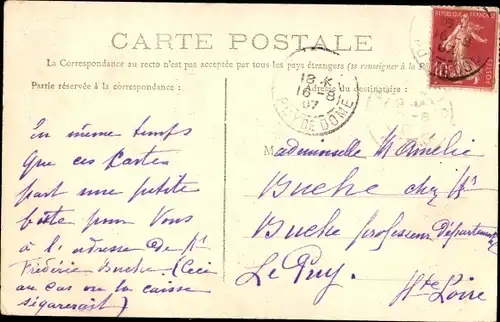 CARTE POSTALE
La Correspondance au recto n'est pas acceptée par tous les pays étrangers (se renseigner à la
Partie réservée à la correspondance :
Adresse du destinataire :
RÉPUBLIQUE FRANÇAISE
POSTES
18·K
16-8
07
PUY DE DOME
In même temps
que ces cartes
part une petite
boîte pour Vous
à l'adresse de Mr
Frédéric Buche (Ceci
au cas où la caisse
s'égarerait)
Mademoiselle Amélie
Buche chez Mr
Buche professeur départemental
Le Puy.
Hte Loire